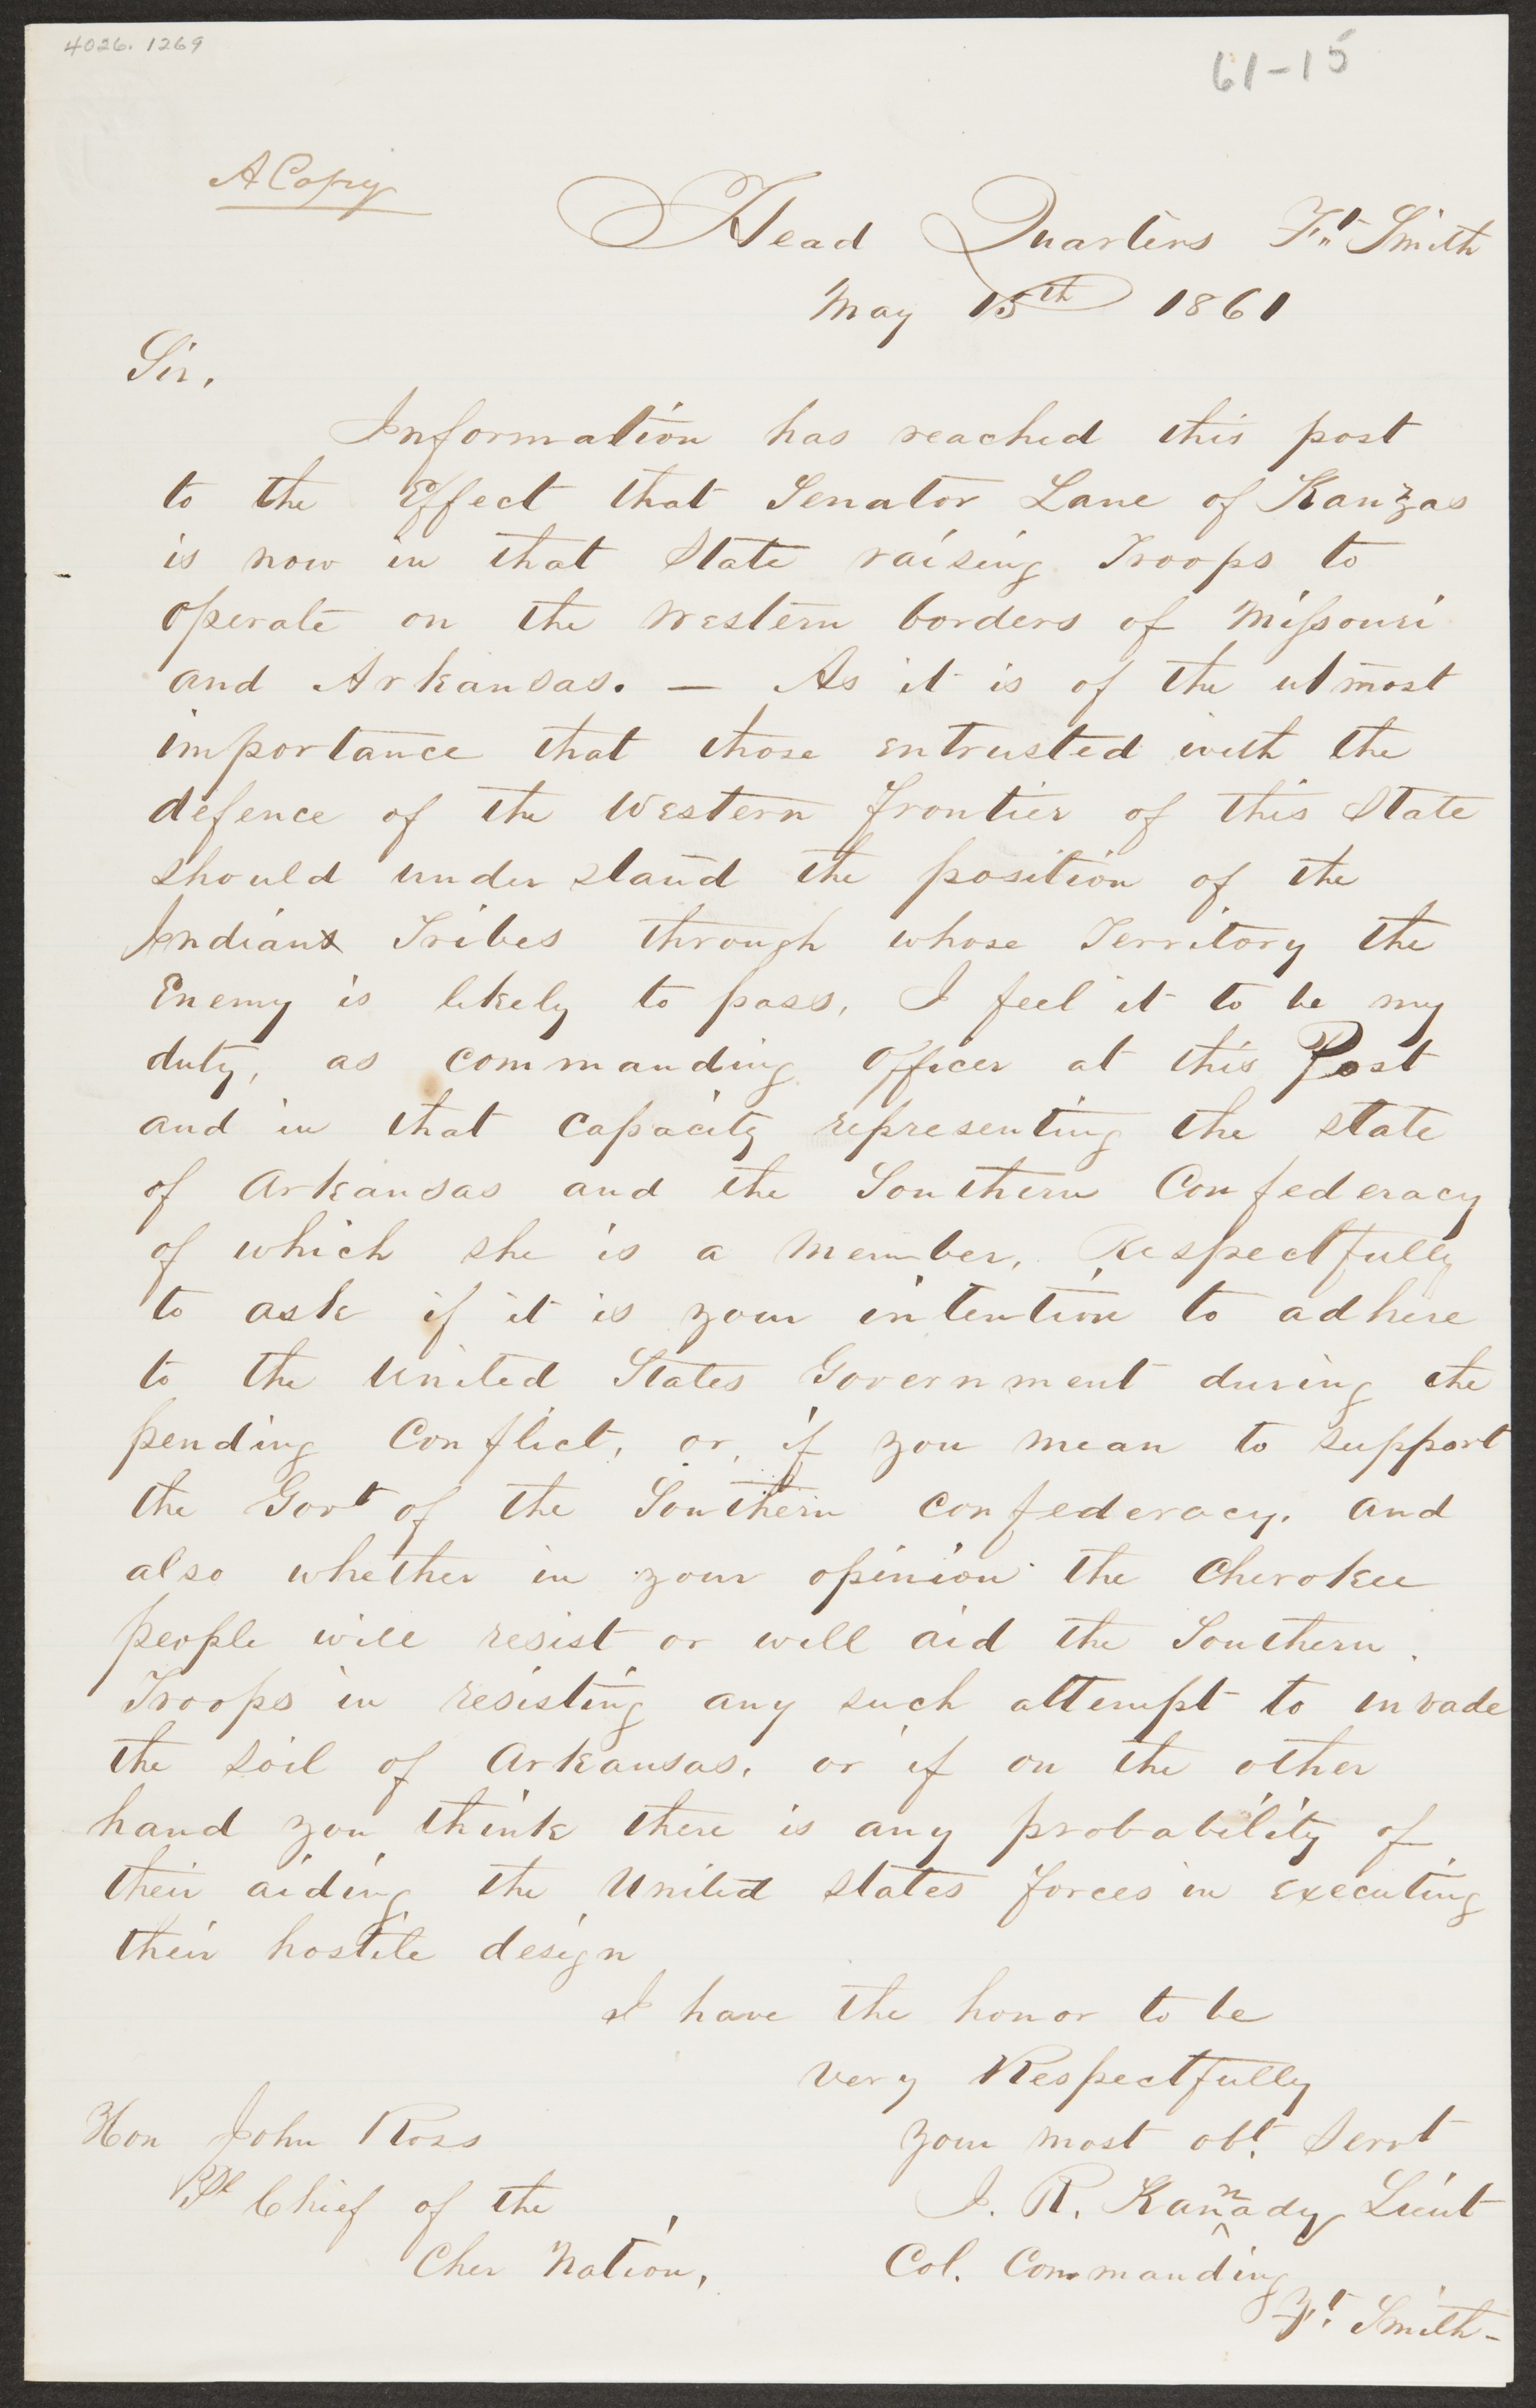 4026.1269
61-15
A Copy
Head Quarters Ft Smith
May 15th 1861
Sir,
Information has reached this post
to the Effect that Senator Lane of Kanzas
is now in that State raising Troops to
operate on the Western borders of Missouri
and Arkansas. — As it is of the utmost
importance that those entrusted with the
defence of the Western frontier of this State
should understand the position of the
Indian Tribes through whose Territory the
Enemy is likely to pass, I feel it to be my
duty, as commanding officer at this Post
and in that capacity representing the state
of Arkansas and the Southern Confederacy
of which she is a Member, Respectfully
to ask if it is your intention to adhere
to the United States Government during the
pending Conflict, or if you mean to support
the Govt of the Southern confederacy. and
also whether in your opinion the Cherokee
people will resist or will aid the Southern
Troops in resisting any such attempt to invade
the soil of Arkansas. or if on the other
hand you think there is any probability of
their aiding the United states forces in executing
their hostile design
I have the honor to be
very Respectfully
your most obt. Servt
J. R. Kannady Lieut
Col. Commanding
Ft. Smith-
Hon John Ross
Pl Chief of the
Cher Nation,